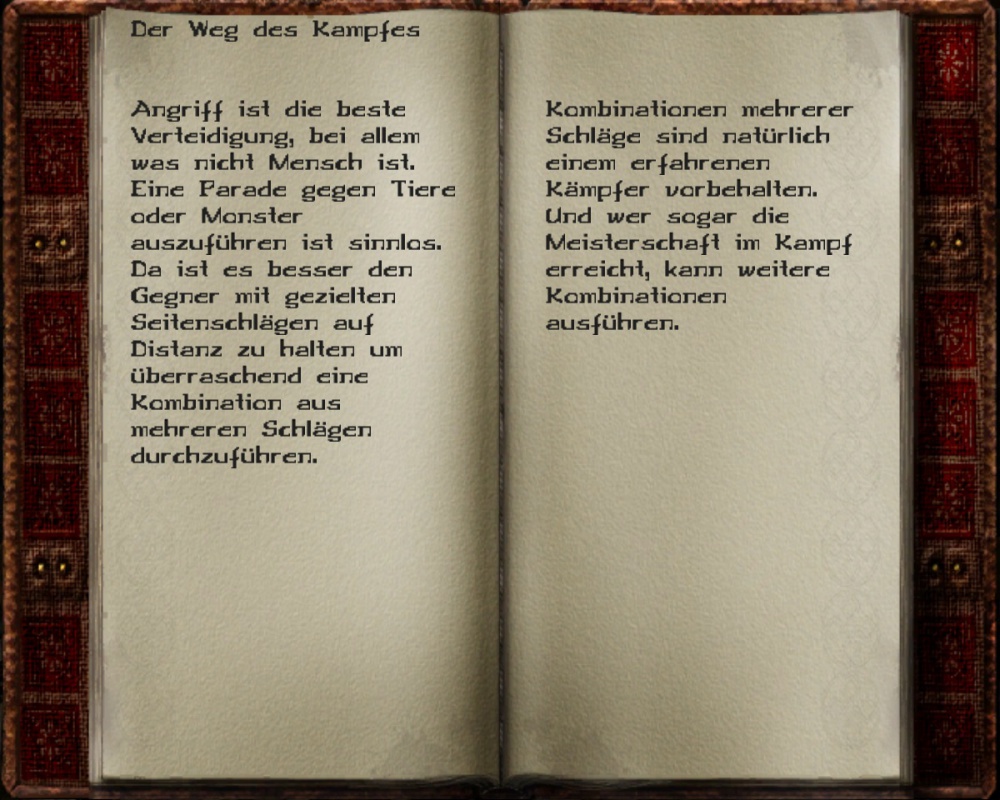 Der Weg des Kampfes
Angriff ist die beste
Verteidigung, bei allem
was nicht Mensch ist.
Eine Parade gegen Tiere
oder Monster
auszuführen ist sinnlos.
Da ist es besser den
Gegner mit gezielten
Seitenschlägen auf
Distanz zu halten um
überraschend eine
Kombination aus
mehreren Schlägen
durchzuführen.
Kombinationen mehrerer
Schläge sind natürlich
einem erfahrenen
Kämpfer vorbehalten.
Und wer sogar die
Meisterschaft im Kampf
erreicht, kann weitere
Kombinationen
ausführen.